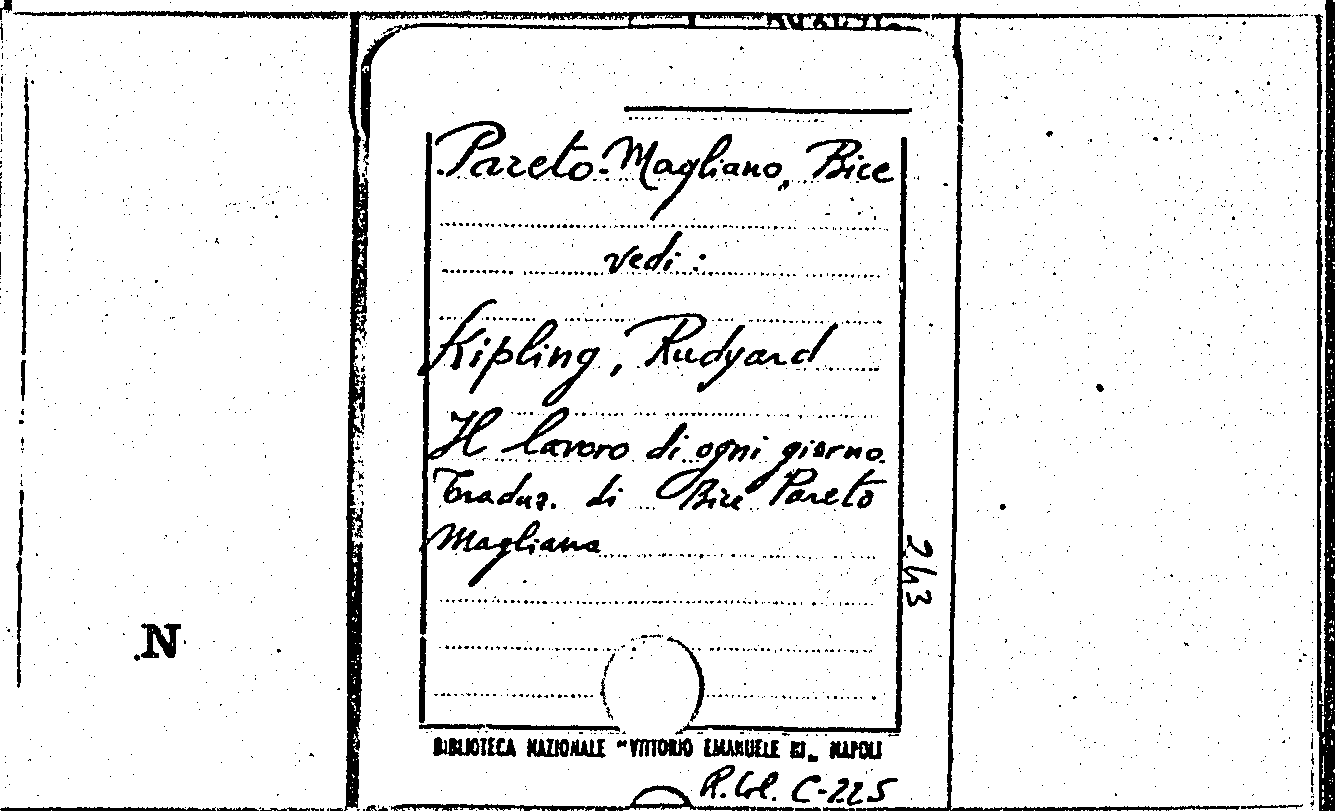 Pareto-Magliano, Bice
vedi :
Kipling, Rudyard
Il lavoro di ogni giorno.
Traduz. di Bice Pareto
Magliano
243
N
BIBLIOTECA NAZIONALE "VITTORIO EMANUELE III„ NAPOLI
R. Col. C-225